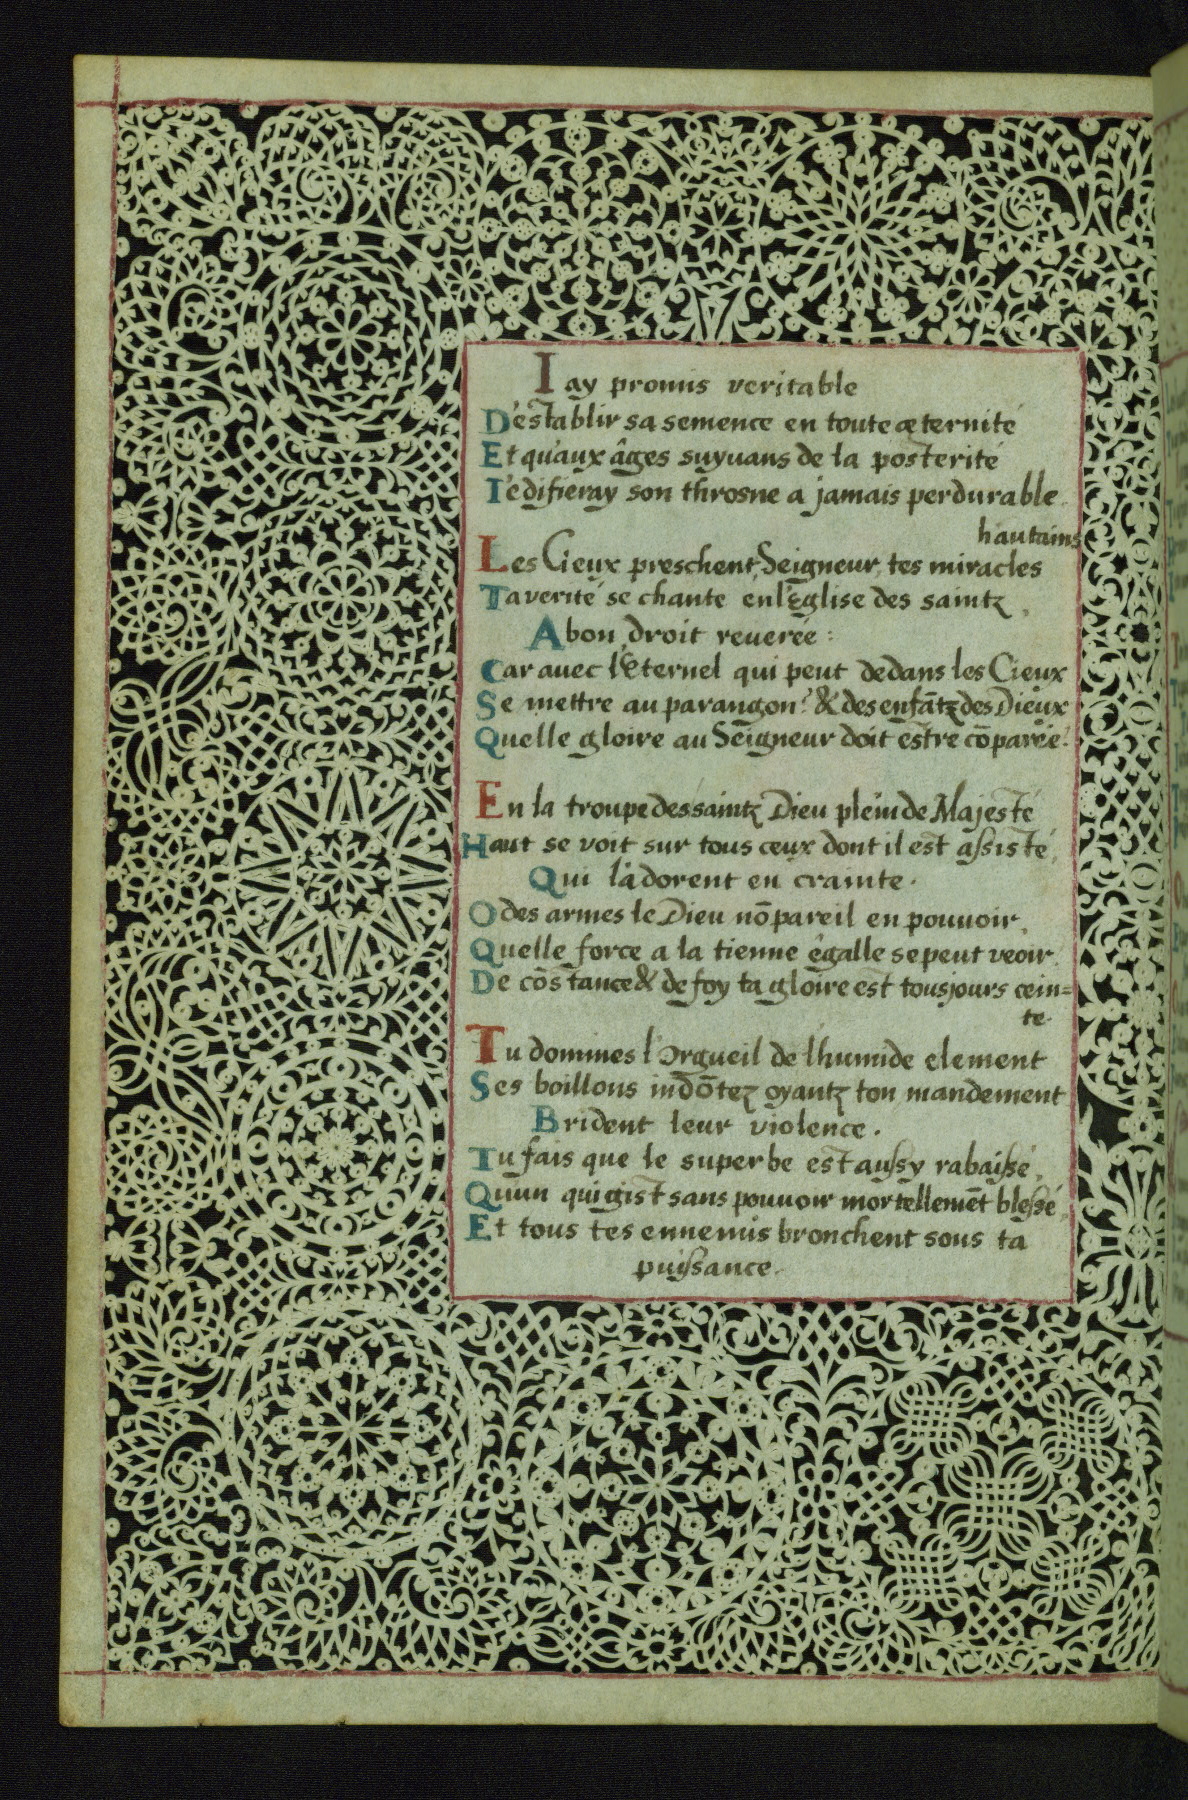 Iay promis veritable
D'establir sa semence en toute æternité
Et qu'aux âges suyuans de la posterité
I'edifieray son throsne a jamais perdurable.
hautains
Les Cieux preschent, Seigneur, tes miracles
Ta verité se chante en l'Eglise des saintz,
A bon droit reuerée :
Car auec l'Eternel qui peut dedans les Cieux
Se mettre au parangon? & des enfātz des Dieux
Quelle gloire au Seigneur doit estre cōparée?
En la troupe des saintz Dieu plein de Majesté
Haut se voit sur tous ceux dont il est assisté,
Qui l'adorent en crainte.
O des armes le Dieu nōpareil en pouvoir,
Quelle force a la tienne égalle se peut veoir.
De cōstance & de foy ta gloire est tousjours cein=
te.
Tu domines l'Orgueil de l'humide element
Ses boillons indōtez oyantz ton mandement
Brident leur violence.
Tu fais que le superbe est aussy rabaissé,
Qu'un qui gist sans pouvoir mortellemēt blessé,
Et tous tes ennemis bronchent sous ta
puissance.